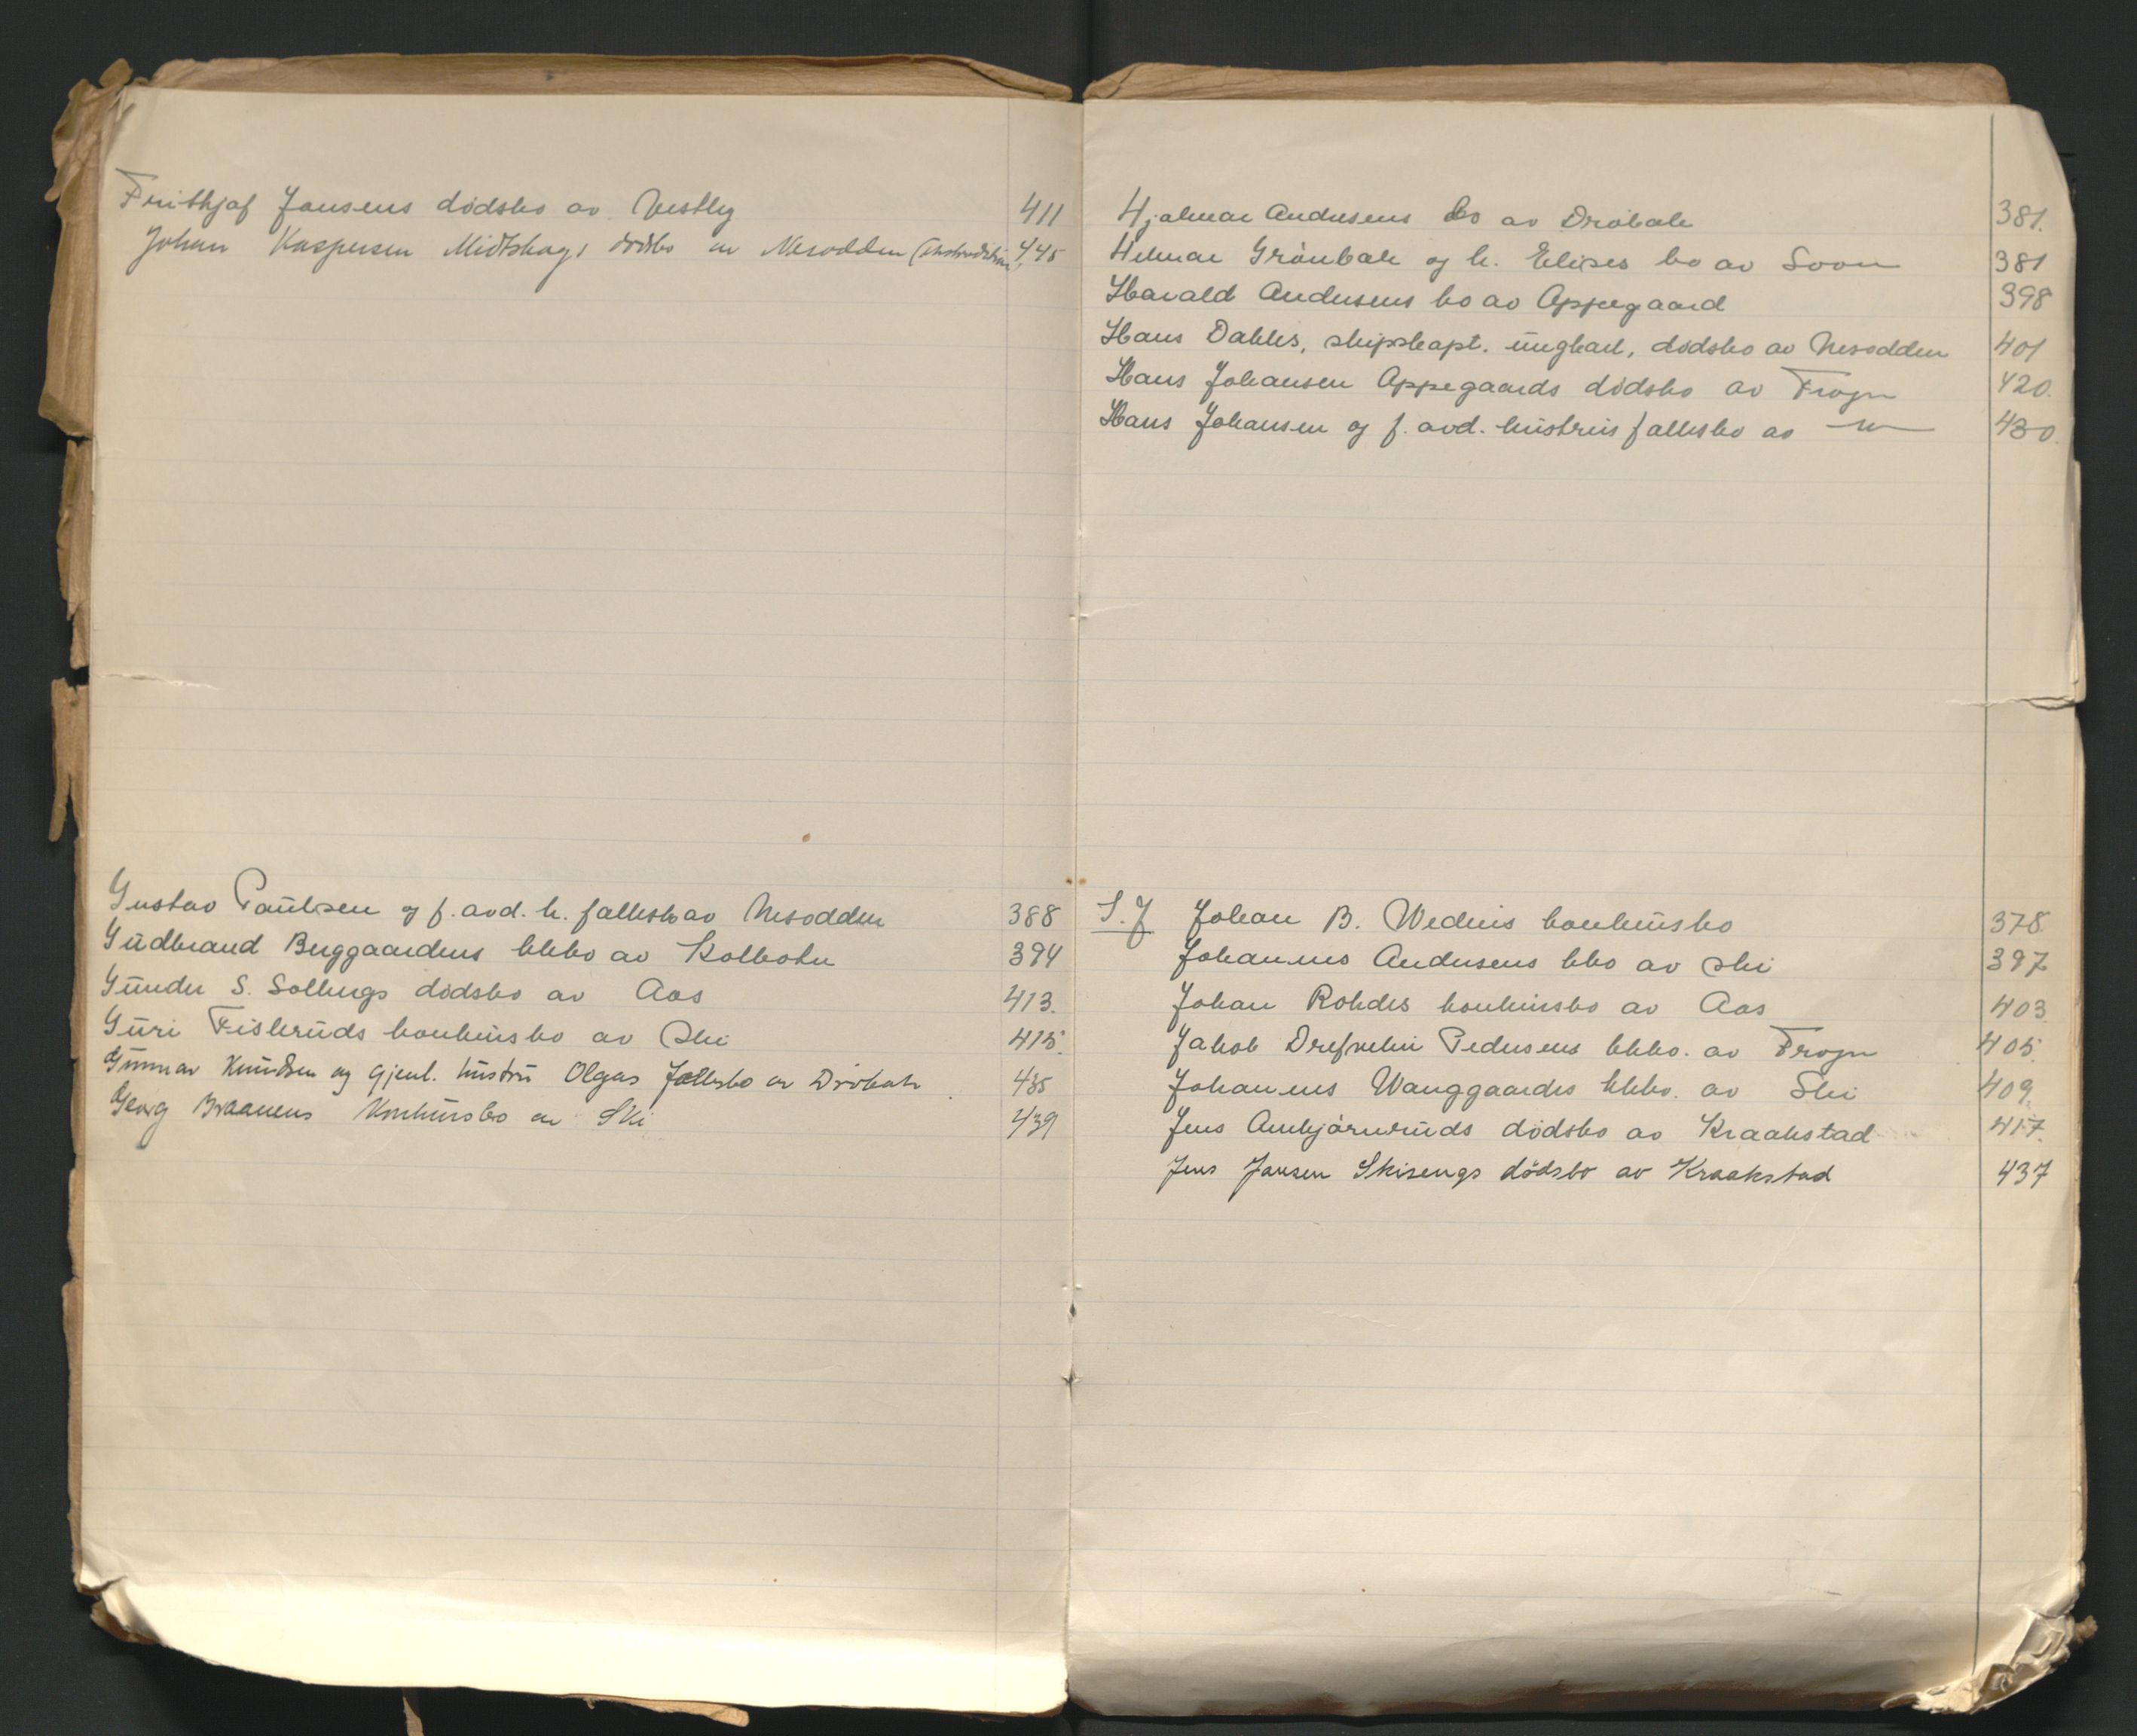 Frithjof Jansens dödsbo av Vestby 411
Johan Kaspersen Midtskogs dödsbo av Nesodden 445
Gustav Paulsen og f. avd. h. fallesbo av Nesodden 388
Gudbrand Berggaardens kkbo av Kolbotn 394
Gunder S. Solbergs dödsbo av Aas 413.
Guri Fiskeruds konkursbo av Ski 415.
Gunnar Knudsen og gjenl. hustru Olgas fællesbo av Dröbak 435
Georg Braanens Konkursbo av Ski 439
Hjalmar Andersens bo av Dröbak 381.
Helmar Grönbak og h. Elises bo av Soon 381
Harald Andersens bo av Oppegaard 398
Hans Dahls, skipskapt. ungkarl, dödsbo av Nesodden 401
Hans Johansen Oppegaards dödsbo av Frogn 420.
Hans Johansen og f. avd. hustrus fallesbo av — " — 430.
I. J Johan B. Wedins konkursbo 378.
Johannes Andersens kbo av Ski 397
Johan Rohdes konkursbo av Aas 403.
Jakob Pedersens kkbo. av Frogn 405.
Johannes Wanggaards kkbo. av Ski 409.
Jens Aubjörnruds dödsbo av Kraakstad 417.
Jens Jansen Skisengs dödsbo av Kraakstad 437